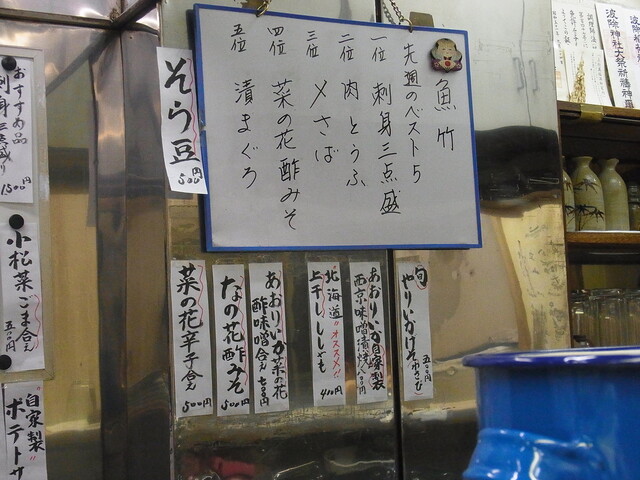 魚竹
先週のベスト5
一位 刺身三点盛
二位 肉とうふ
三位 〆さば
四位 菜の花酢みそ
五位 漬まぐろ
そら豆 500円
おすすめ品
刺身三点盛り 1500
小松菜ごま合え 五〇〇円
自家製
ポテトサ
旬 やりいかげそ(わさび) 五〇〇円
あおりいか自家製
西京味噌漬焼
北海道 オススメ!!
上干ししゃも 400円
あおりいか菜の花
酢味噌合え 七〇〇円
なの花酢みそ 500円
菜の花辛子合え 500円
波除神社大祭祈禱神璽